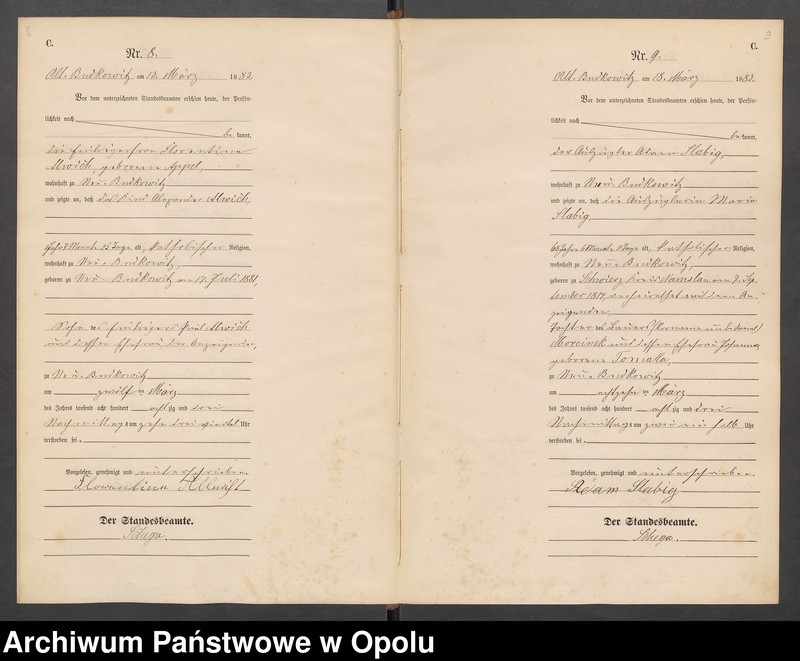 8
C.
Nr. 8.
Alt-Budkowitz am 13. März 1883.
Vor dem unterzeichneten Standesbeamten erschien heute, der Persön-
lichkeit nach
bekannt,
die Freileigerfrau Florentine
geborene Appel,
wohnhaft zu Neu-Budkowitz
und zeigte an, daß das Kind Alexander
Jahr 7 Monate 25 Tage alt, katholischer Religion,
wohnhaft zu Neu-Budkowitz,
geboren zu Neu-Budkowitz am 17. Juli 1881,
Sohn des Paul
und dessen Ehefrau der Anzeigenden,
zu Neu-Budkowitz
am zwölften März
des Jahres tausend acht hundert achtzig und drei
Nachmittags um zehn drei viertel Uhr
verstorben sei.
Vorgelesen, genehmigt und unterschrieben
Florentina
Der Standesbeamte.
Schega.
9
C.
Nr. 9.
Alt-Budkowitz am 18. März 1883.
Vor dem unterzeichneten Standesbeamten erschien heute, der Persön-
lichkeit nach
bekannt,
der Auszügler Adam Slabig,
wohnhaft zu Neu-Budkowitz
und zeigte an, daß die Auszüglerin Maria
Slabig,
68 Jahre 6 Monate 11 Tage alt, katholischer Religion,
wohnhaft zu Neu-Budkowitz,
geboren zu Schwierz Kreis Namslau am 7. Sep-
tember 1814, verheirathet mit dem An-
zeigenden,
Tochter des Bauers (Vorname unbekannt)
Morcinek und dessen Ehefrau Johanna
geborene Tomalla,
zu Neu-Budkowitz
am achtzehnten März
des Jahres tausend acht hundert achtzig und drei
Nachmittags um zwei ein halb Uhr
verstorben sei.
Vorgelesen, genehmigt und unterschrieben
Adam Slabig
Der Standesbeamte.
Schega.
Archiwum Państwowe w Opolu